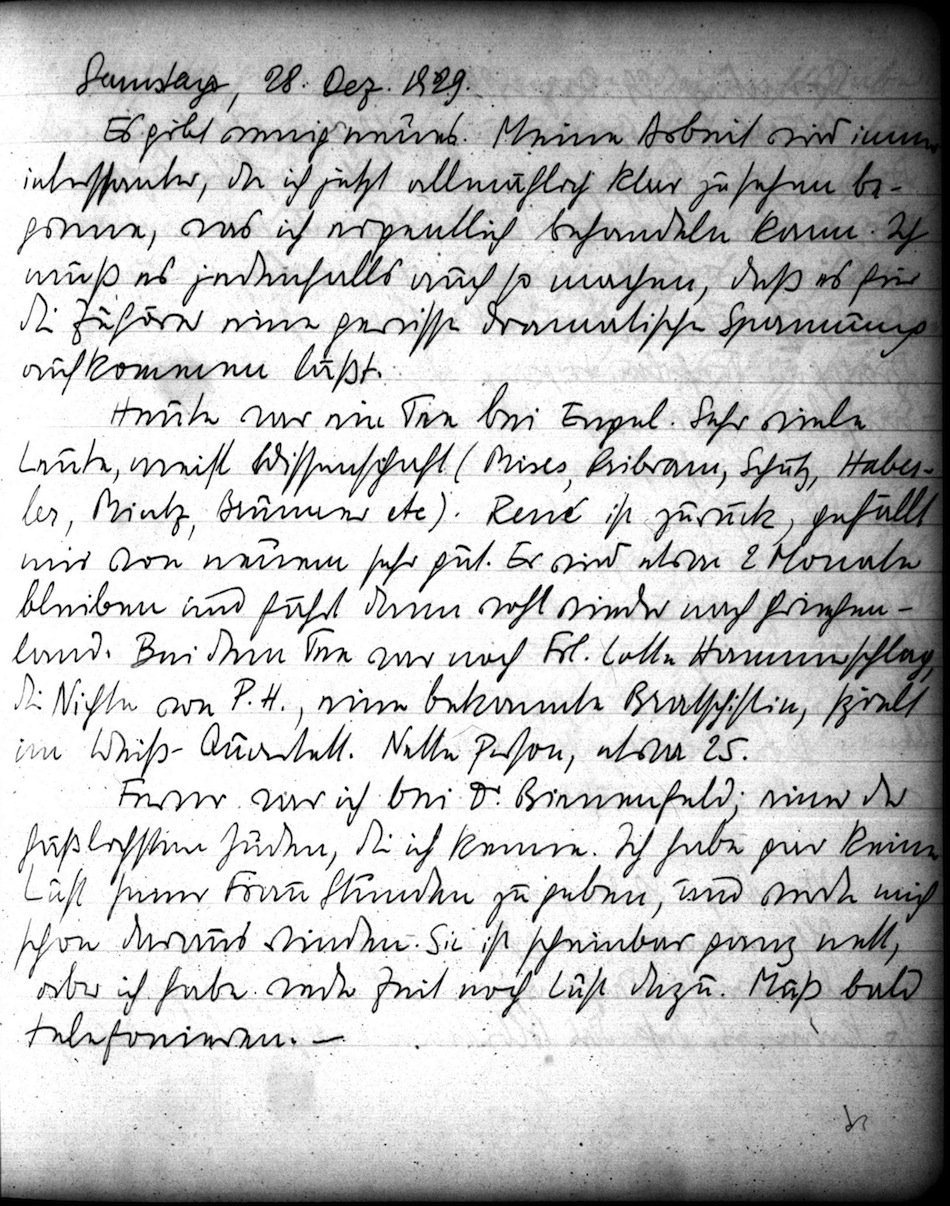 Samstag, 28. Dez. 1929.
Es gibt wenig neues. Meine Arbeit wird immer
interessanter, da ich jetzt allmählich klar zu sehen be-
ginne, was ich eigentlich behandeln kann. Ich
muß es jedenfalls auch so machen, daß es für
die Zuhörer eine gewisse dramatische Spannung
aufkommen läßt.
Heute war ein Tee bei Engel. Sehr viele
Leute, meist Wissenschaft (Mises, Pribram, Schütz, Haber-
ler, Mintz, etc). René ist zurück, gefällt
mir von neuem sehr gut. Er wird etwa 2 Monate
bleiben und fährt dann wohl wieder nach Griechen-
land. Bei dem Tee war noch Frl. Lotte Hammerschlag,
die Nichte von P. H., eine bekannte Bratschistin, spielt
im Weiß-Quartett. Nette Person, etwa 25.
Ferner war ich bei Dr. Bienenfeld; einer der
häßlichsten Juden, die ich kenne. Ich habe gar keine
Lust seiner Frau Stunden zu geben, und werde mich
schon daraus winden. Sie ist scheinbar ganz nett,
aber ich habe weder Zeit noch Lust dazu. Muß bald
telefonieren. —